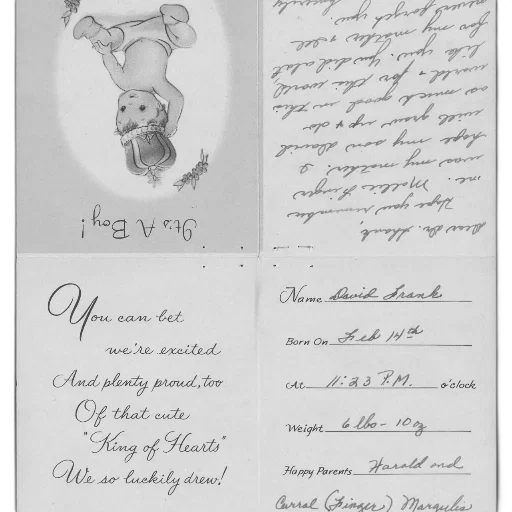 It's A Boy!
Dear Dr. Shank,
Hope you remember
me. Finger
was my mother. I
hope my son David
will grow up & do
as much good in this
world & for this world,
like you. You did a lot
for my mother & I'll
never forget you.
Sincerely
You can bet
we're excited
And plenty proud, too
Of that cute
"King of Hearts"
We so luckily drew!
Name David Frank
Born On Feb 14th
At 11:23 P.M. o'clock
Weight 6 lbs - 10 oz
Happy Parents Harold and
Carral (Finger) Margulis